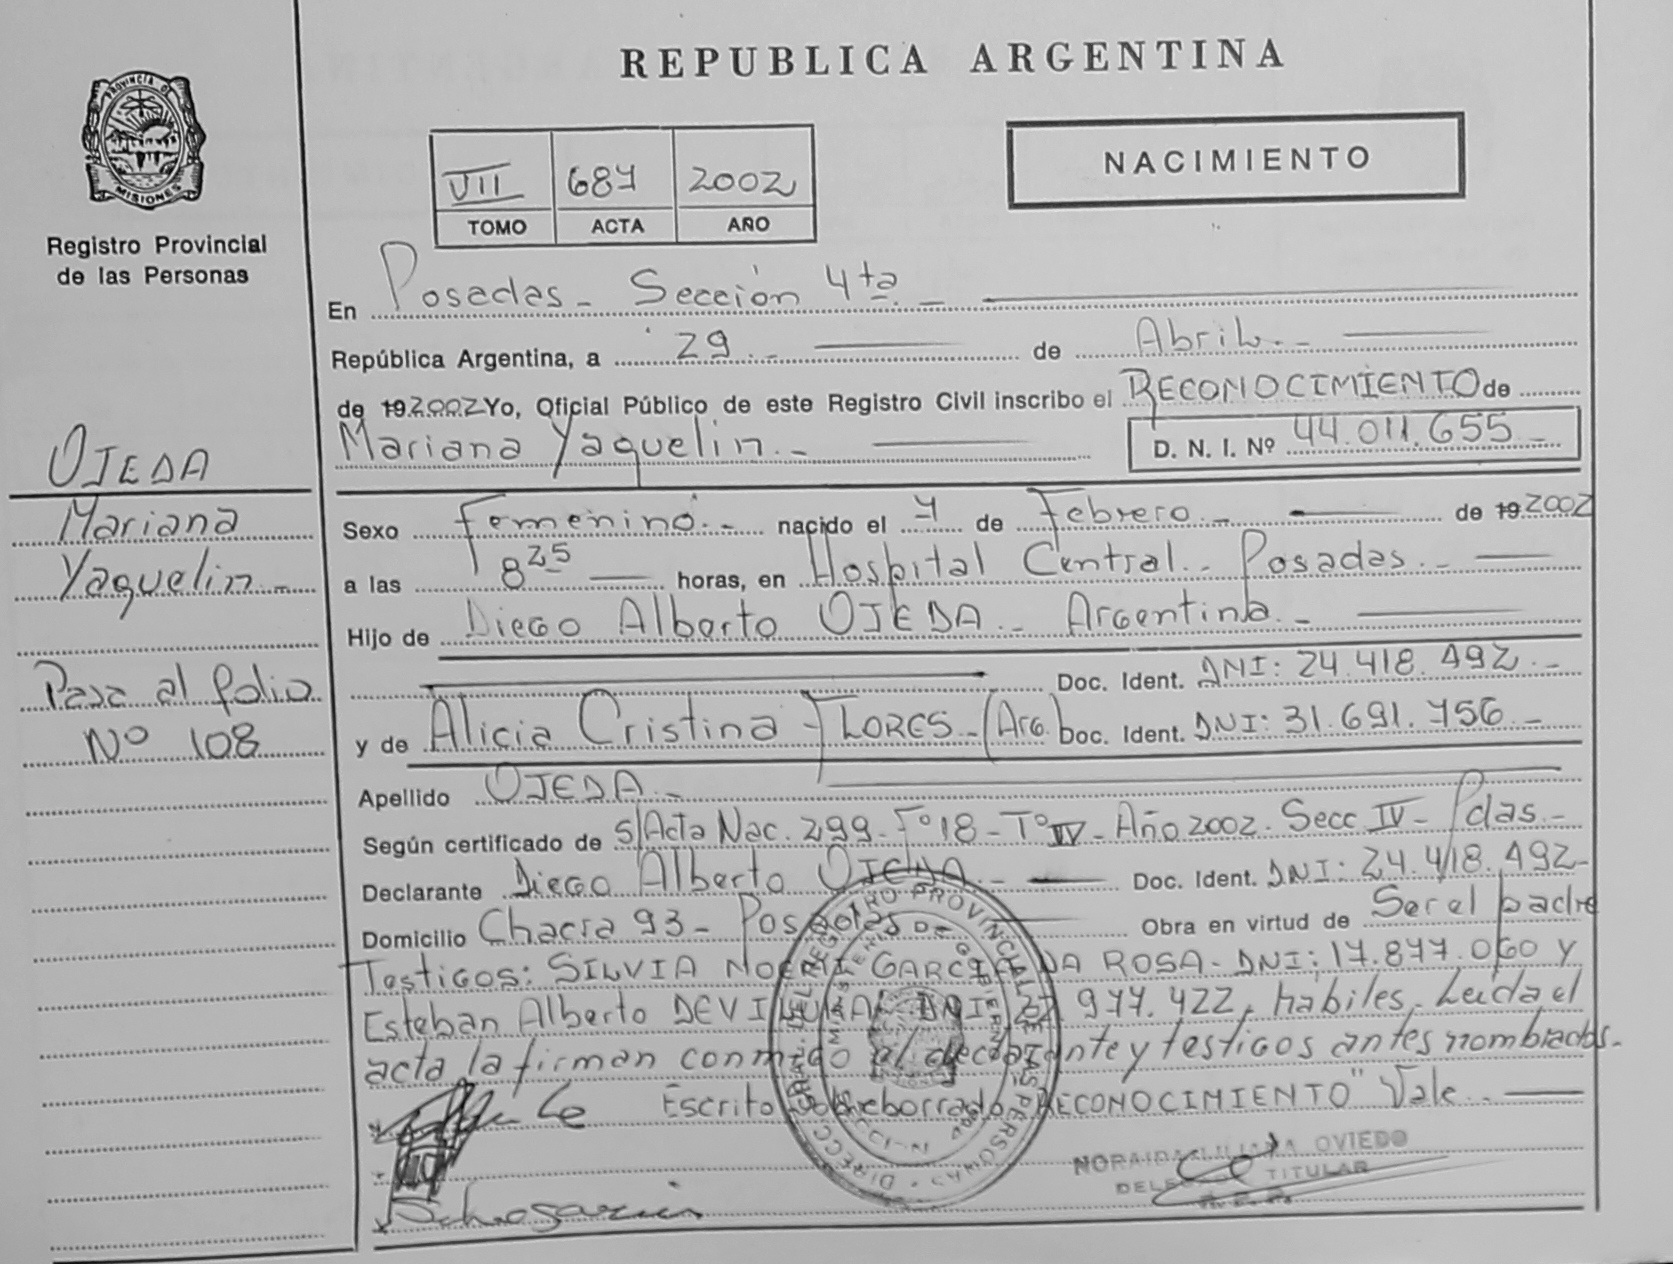 REPUBLICA ARGENTINA
NACIMIENTO
VII 687 2002
TOMO ACTA AÑO
PROVINCIA DE MISIONES
Registro Provincial
de las Personas
OJEDA
Mariana
Yaquelin.-
Pasa al folio
Nº 108
En Posadas - Sección 4ta. -
República Argentina, a 29.- de Abril.-
de 19 2002 Yo, Oficial Público de este Registro Civil inscribo el RECONOCIMIENTO de
Mariana Yaquelin.- D. N. I. Nº 44.011.655 -
Sexo Femenino.- nacido el 7 de Febrero.- de 19 2002
a las 8 horas, en Hospital Central.- Posadas.-
Hijo de Diego Alberto OJEDA.- Argentina.-
Doc. Ident. DNI: 24.418.492.-
y de Alicia Cristina FLORES - (Arg.) Doc. Ident. DNI: 31.691.756.-
Apellido OJEDA.-
Según certificado de s/Acta Nac. 299 - Fº 18 - Tº IV - Año 2002. Secc IV - Pdas.-
Declarante Diego Alberto OJEDA.- Doc. Ident. DNI: 24.418.492-
Domicilio Chacra 93 - Posadas Obra en virtud de Ser el padre
Testigos: SILVIA NOEMI GARCIA DA ROSA - DNI: 17.877.060 y
Esteban Alberto DNI 977.422, hábiles. Leida el
acta la firman conmigo el declarante y testigos antes nombrados.-
Escrito sobreborrado "RECONOCIMIENTO" Vale.-
OVIEDO
TITULAR